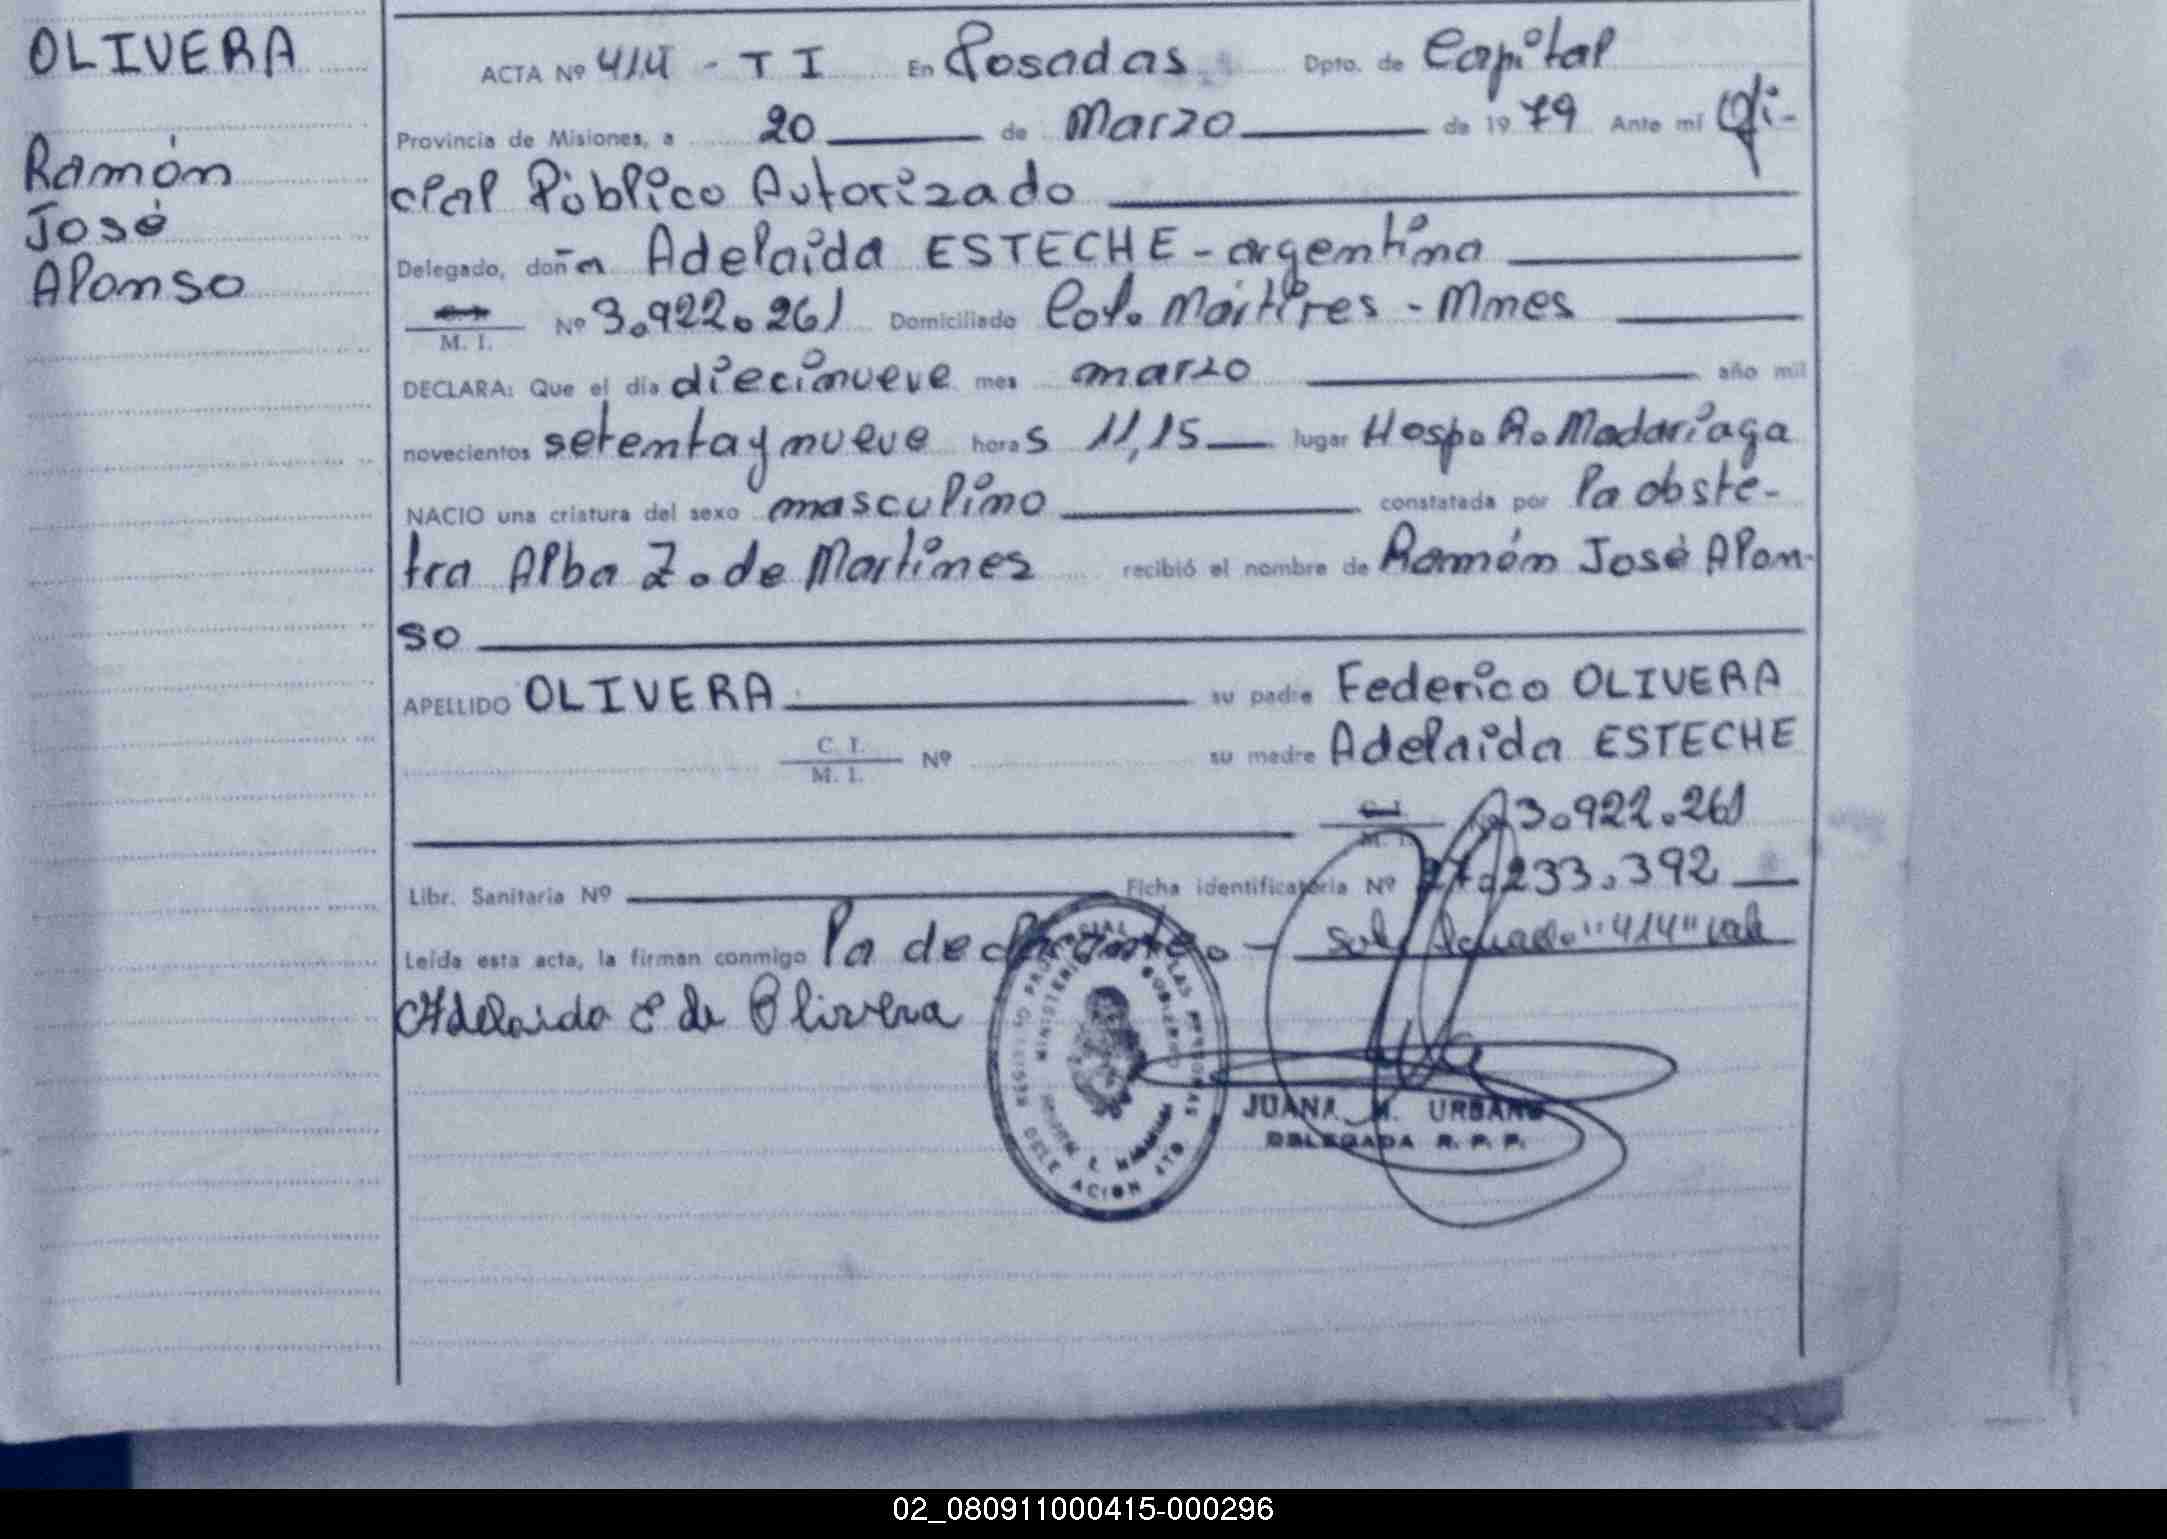 OLIVERA
Ramón
José
Alonso
ACTA Nº 414 - T I En Posadas Dpto. de Capital
Provincia de Misiones, a 20 de Marzo de 1979 Ante mí Ofi-
cial Público Autorizado
Delegado, doña Adelaida ESTECHE - argentina
M. I. Nº 3.922.261 Domiciliado Col. Mártires - Mnes
DECLARA: Que el día diecinueve mes marzo año mil
novecientos setenta y nueve horas 11,15 lugar Hosp. R. Madariaga
NACIO una criatura del sexo masculino constatada por la obste-
tra Alba Z. de Martines recibió el nombre de Ramón José Alon-
so
APELLIDO OLIVERA su padre Federico OLIVERA
C. I.
M. I. Nº su madre Adelaida ESTECHE
3.922.261
Libr. Sanitaria Nº Ficha identificatoria Nº 27.233.392
Leída esta acta, la firman conmigo la declarante. - "414" vale
Adelaida E de Olivera
JUANA M. URBANO
DELEGADA R. P. P.
02_080911000415-000296